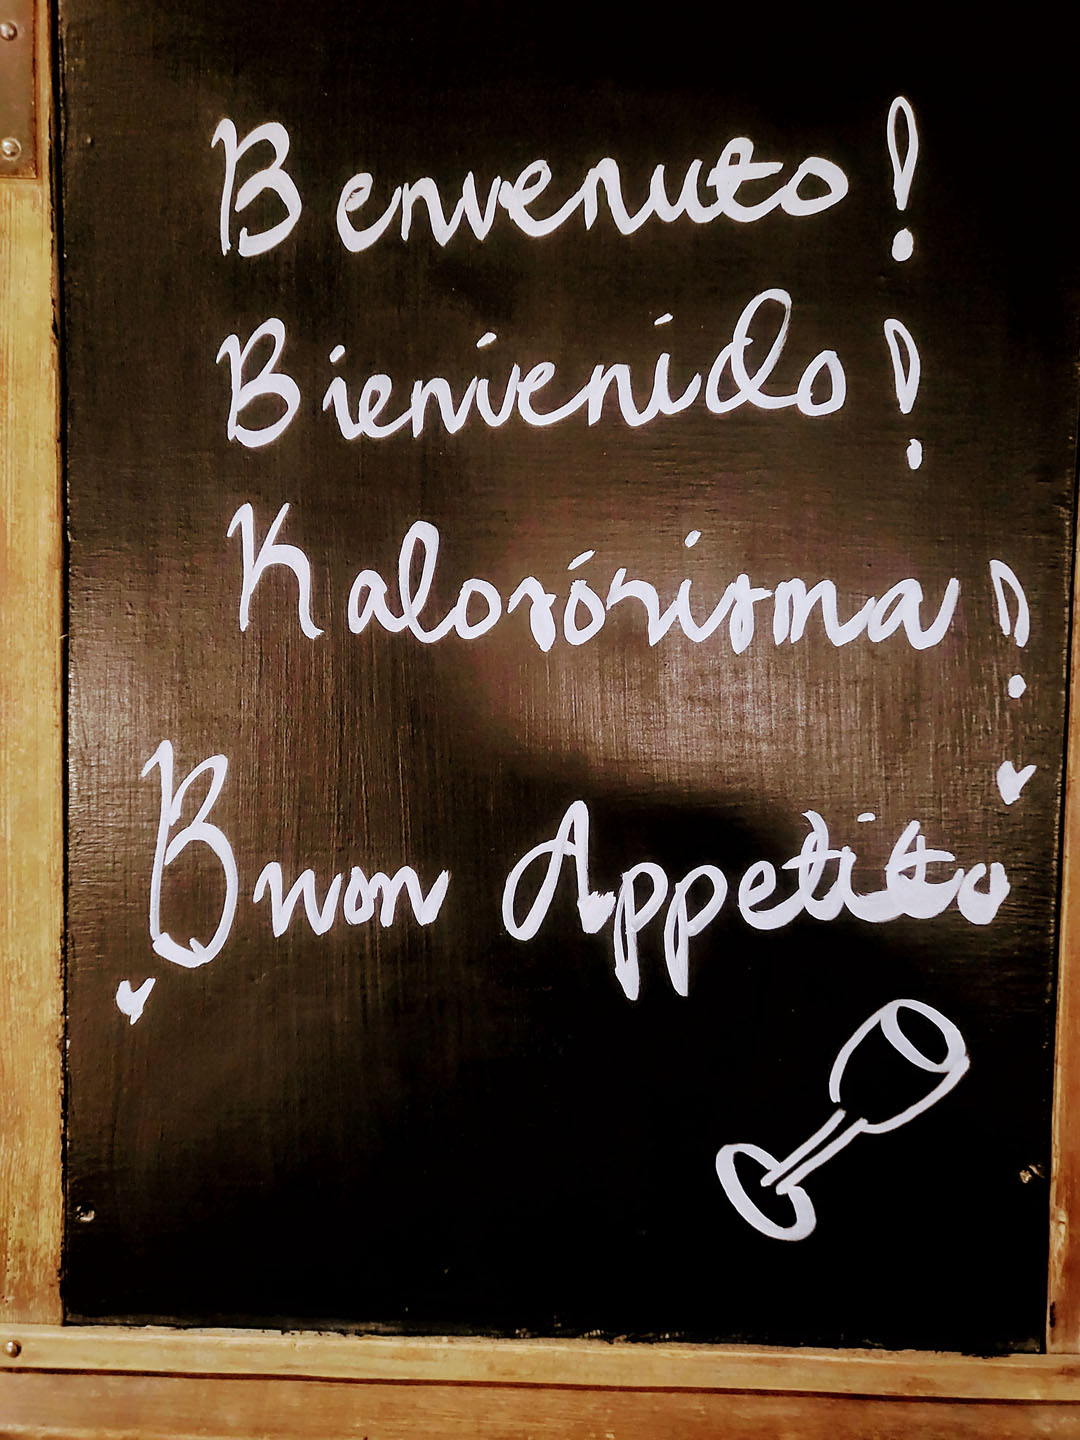 Benvenuto!
Bienvenido!
Kalosórisma!
Buon Appetito